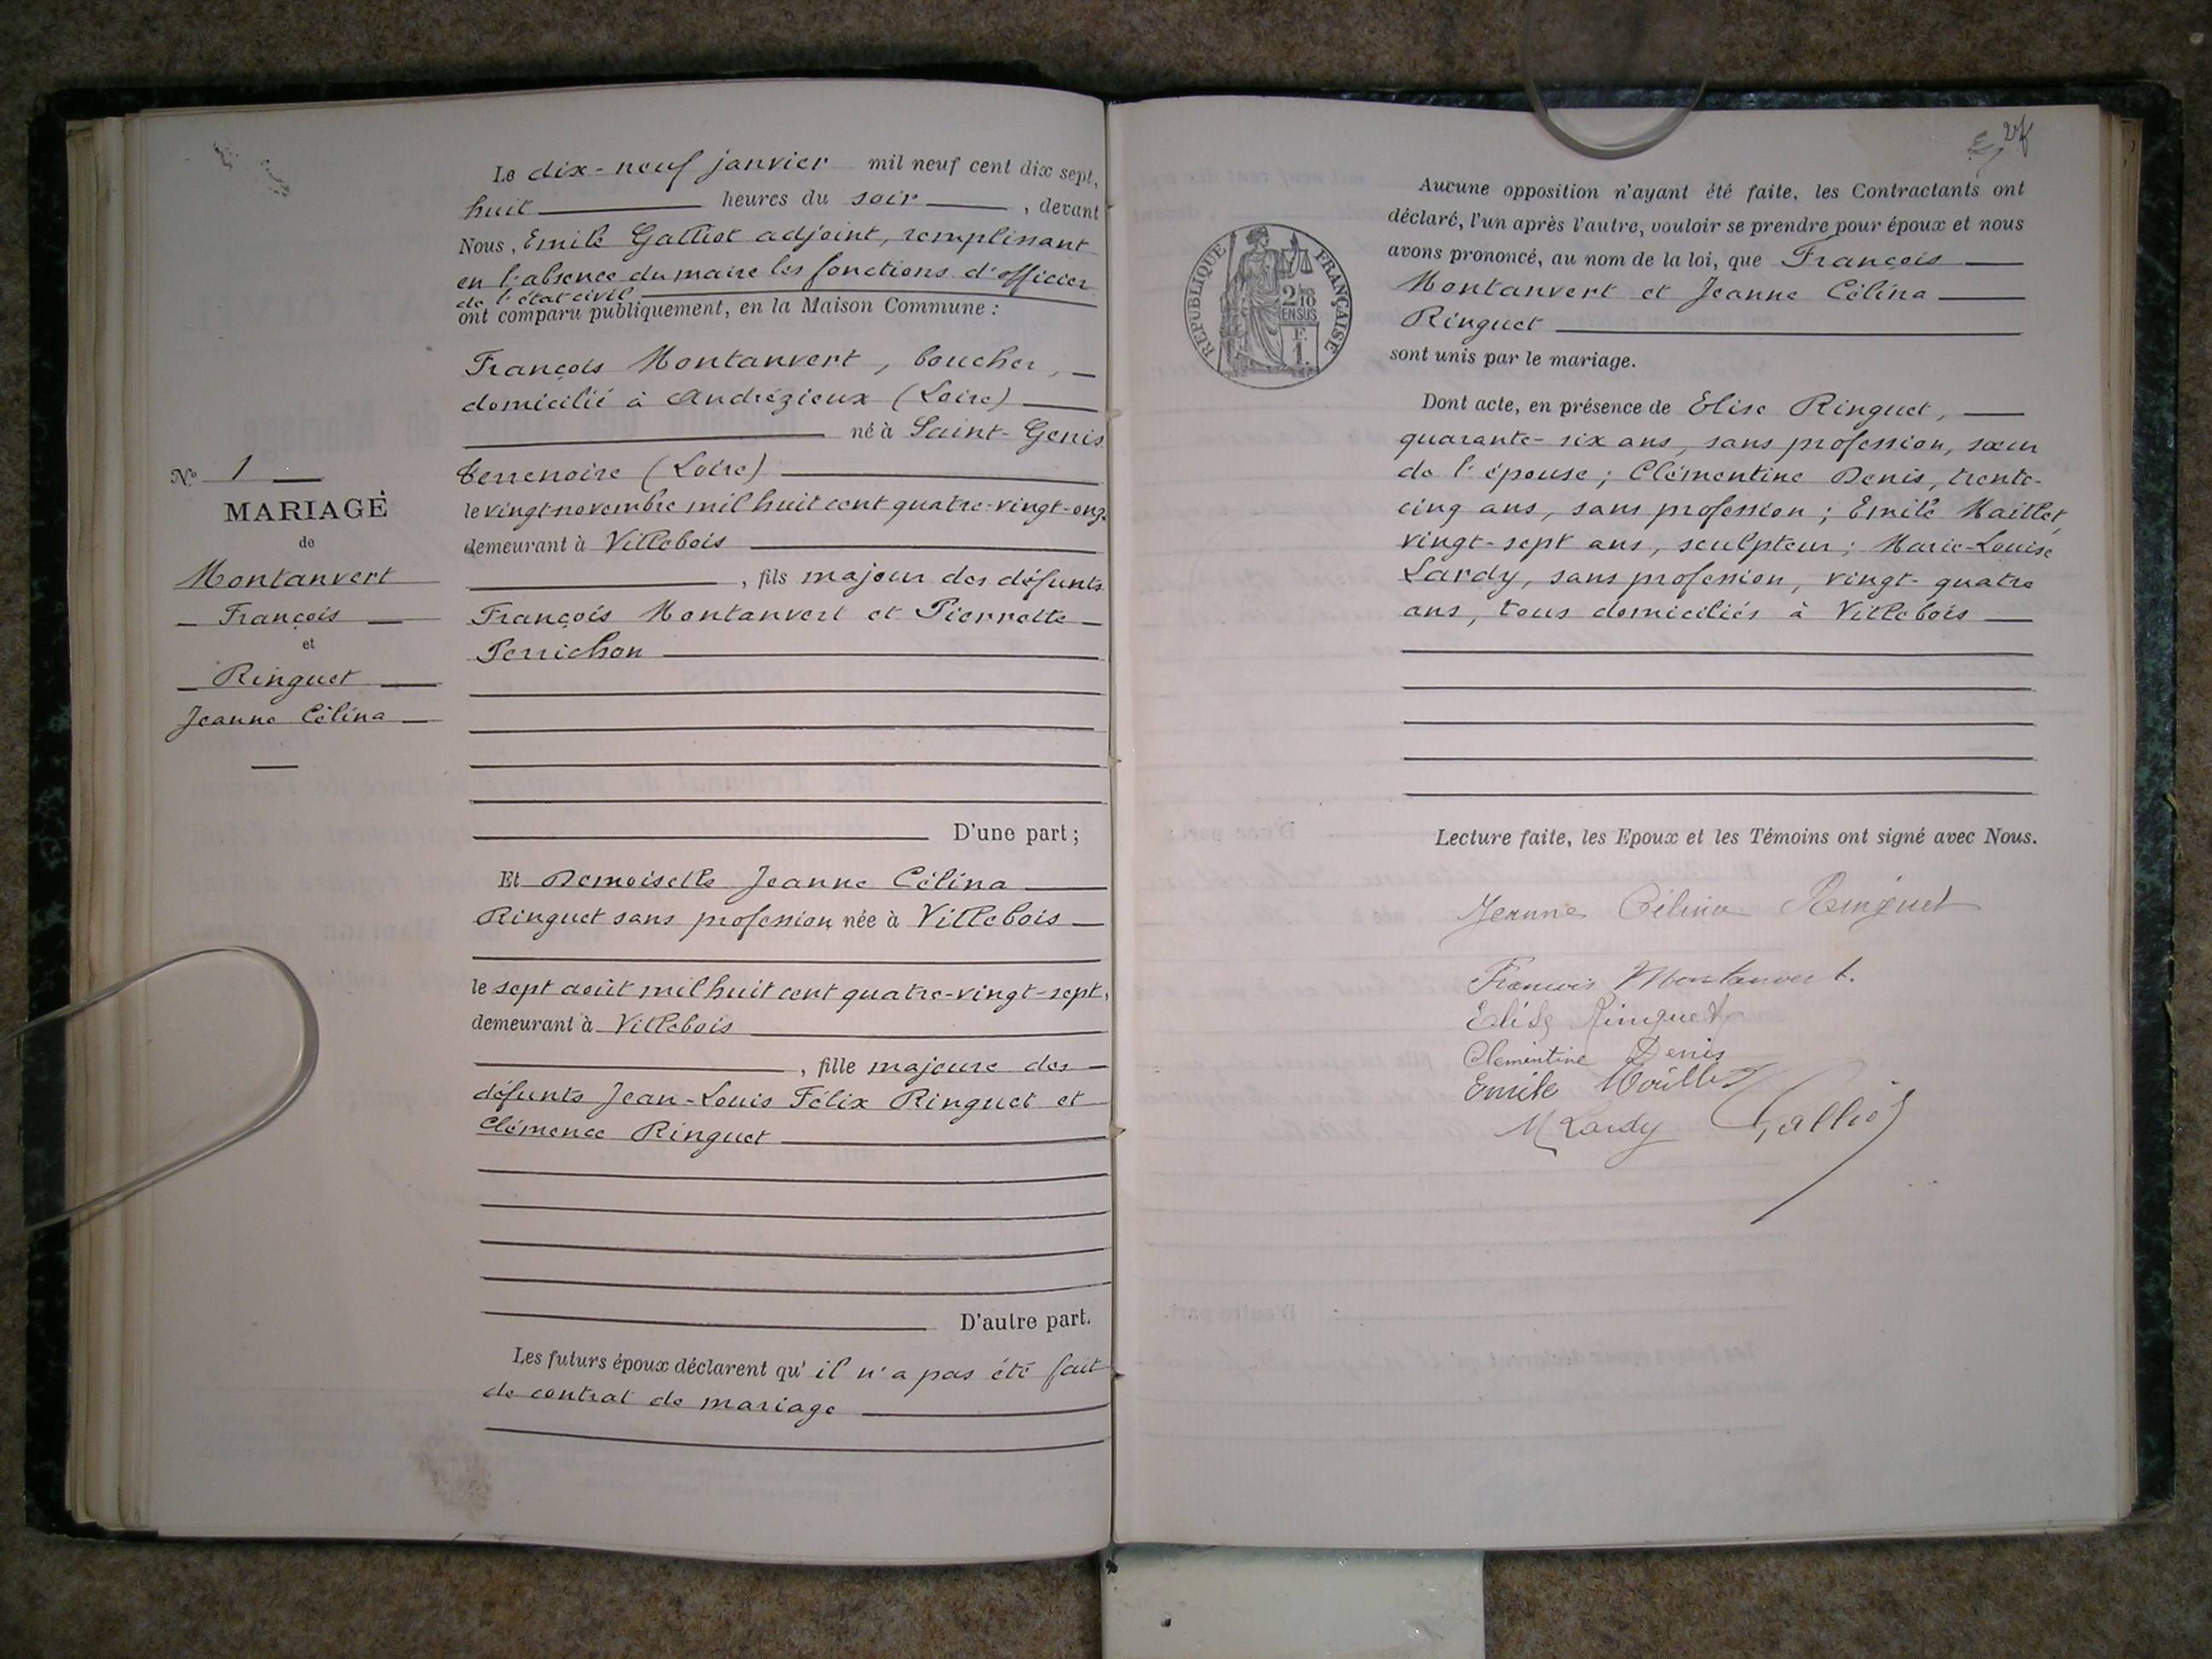 Le dix-neuf janvier mil neuf cent dix sept,
huit heures du soir, devant
Nous, Emile Galliot adjoint, remplissant
en l'absence du maire les fonctions d'officier
de l'état civil
ont comparu publiquement, en la Maison Commune :
François Montanvert, boucher,
domicilié à Andrézieux (Loire)
né à Saint-Genis
Terrenoire (Loire)
le vingt novembre mil huit cent quatre-vingt-onze
demeurant à Villebois
, fils majeur des défunts
François Montanvert et Pierrette
Perrichon
D'une part ;
Et Demoiselle Jeanne Célina
Ringuet sans profession née à Villebois
le sept août mil huit cent quatre-vingt-sept,
demeurant à Villebois
, fille majeure des
défunts Jean-Louis Félix Ringuet et
Clémence Ringuet
D'autre part.
Les futurs époux déclarent qu'il n'a pas été fait
de contrat de mariage
N° 1
MARIAGE
de
Montanvert
François
et
Ringuet
Jeanne Célina
Aucune opposition n'ayant été faite, les Contractants ont
déclaré, l'un après l'autre, vouloir se prendre pour époux et nous
avons prononcé, au nom de la loi, que François
Montanvert et Jeanne Célina
Ringuet
sont unis par le mariage.
Dont acte, en présence de Elise Ringuet,
quarante-six ans, sans profession, sœur
de l'épouse ; Clémentine Denis, trente-
cinq ans, sans profession ; Emile Maillet,
vingt-sept ans, sculpteur ; Marie-Louise
Lardy, sans profession, vingt-quatre
ans, tous domiciliés à Villebois
Lecture faite, les Epoux et les Témoins ont signé avec Nous.
Jeanne Célina Ringuet
Francois Montanvert.
Elise Ringuet
Clementine Denis
Emile Maillet
M Lardy Galliot
RÉPUBLIQUE FRANÇAISE
2/10
EN SUS
F.
1.